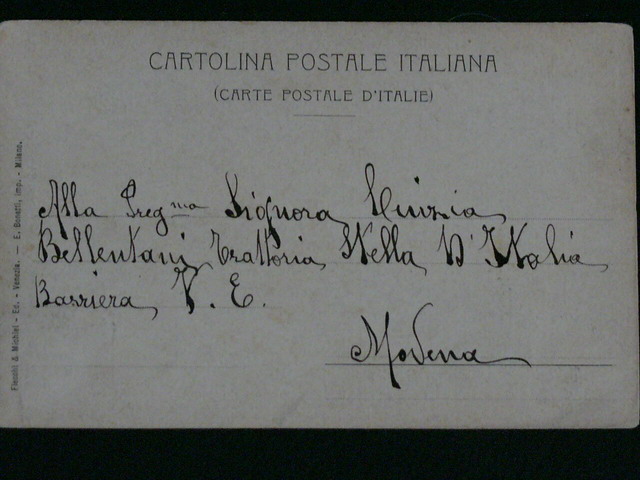 CARTOLINA POSTALE ITALIANA
(CARTE POSTALE D'ITALIE)
Alla Preg.ma Signora
Bellentani Trattoria Stella D'Italia
Barriera V. E.
Modena
Ed. - Venezia. - E. Bonetti, imp. - Milano.